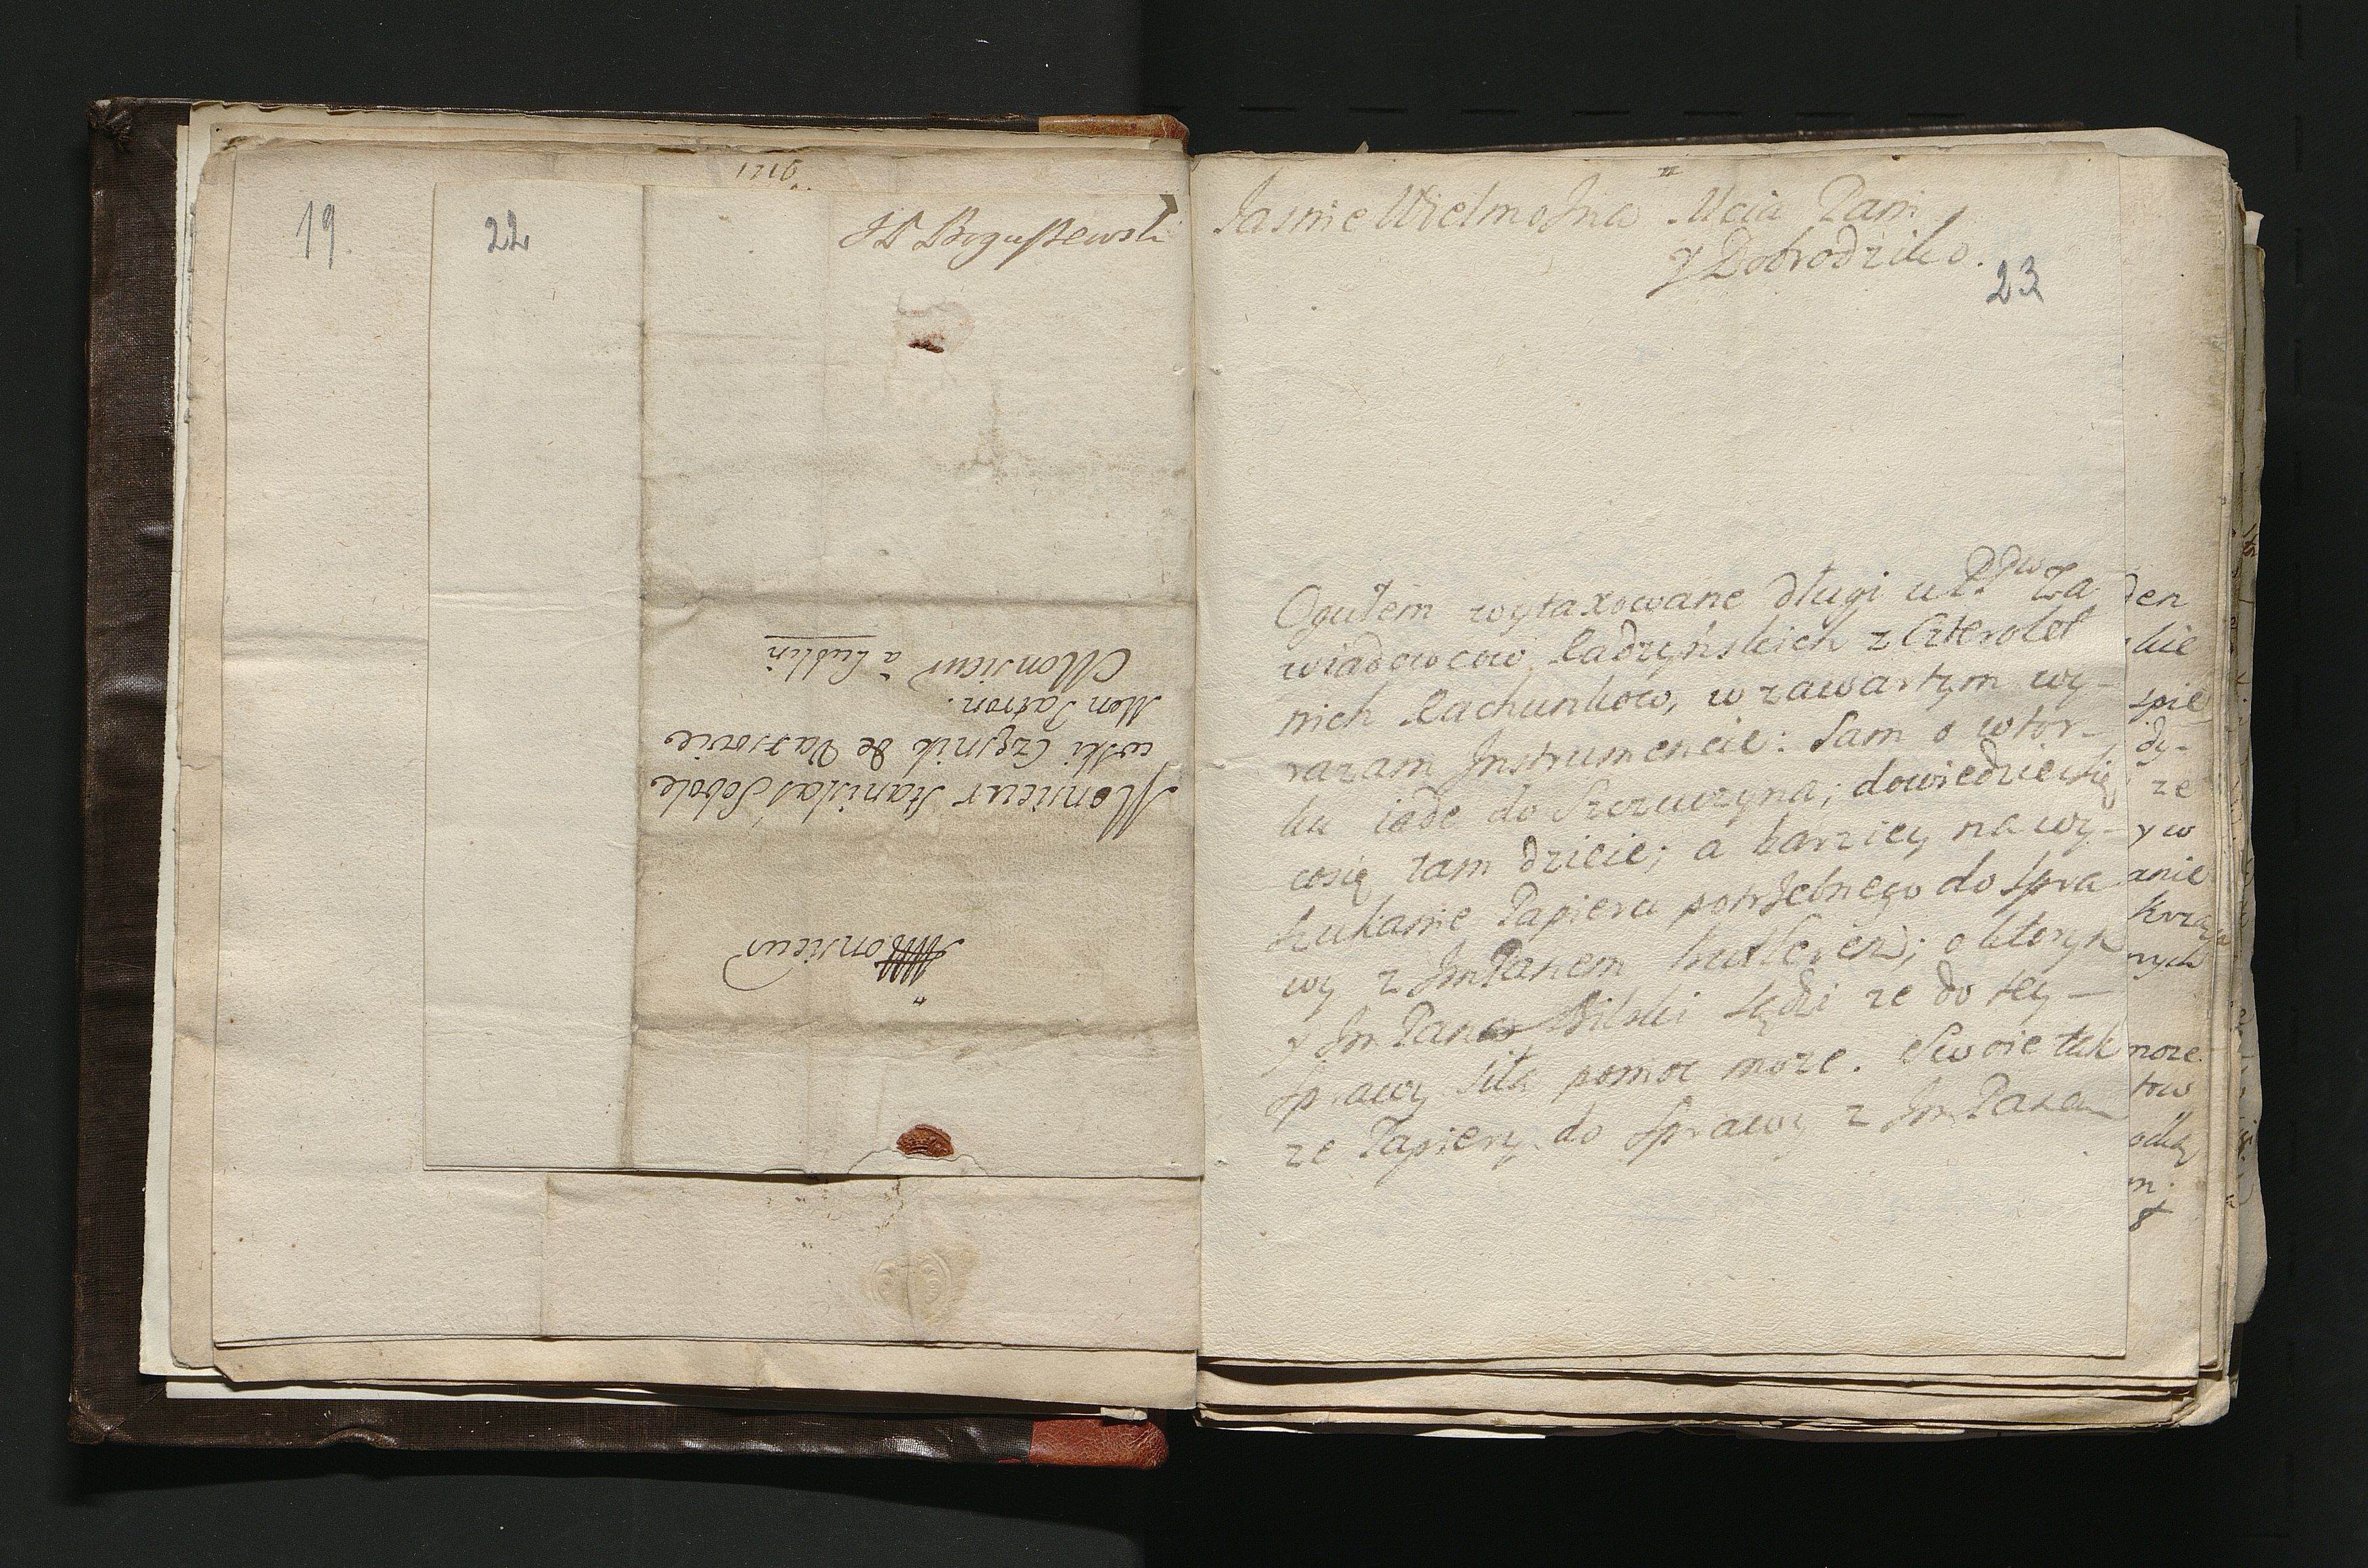 19.
22
J D Boguszewski
Monsieur
Monsieur Stanislas Sobole
wski Czesnik de Varsovie
Mon Patron.
Monsieur à Lublin
Jasnie Wielmozna Mcia Pani
y Dobrodziko.
23
Ogułem wytaxowane długi u P. Pów Za
wiadowcow Radzyńskich z Czterolet
nich Rachunkow, w zawartym wy-
razam Instrumencie: Sam o wtor-
ku iade do Szczuczyna; dowiedziec się
co się tam dzieie; a barziey na wy-
szukanie Papieru potrzebnego do Spra
wy z Jm Panem Butlerem; o ktorych
y Jm Pana Bilski sądzi ze do tey
Sprawy siła pomoc moze. Swoie tak
ze Papiery do Sprawy z Jm Panem
den
kie
spie
dy-
ze
y w
anie
nych
moze
tow